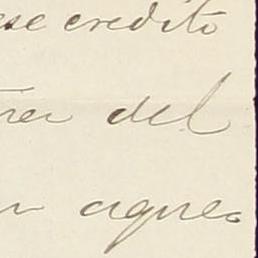 ese credito
ra del
n aque=